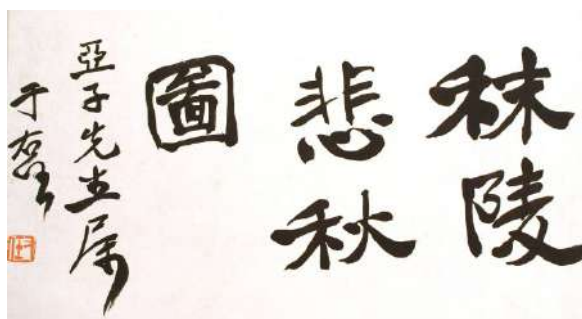 秣陵
悲秋
圖
亞子先生属
于右任